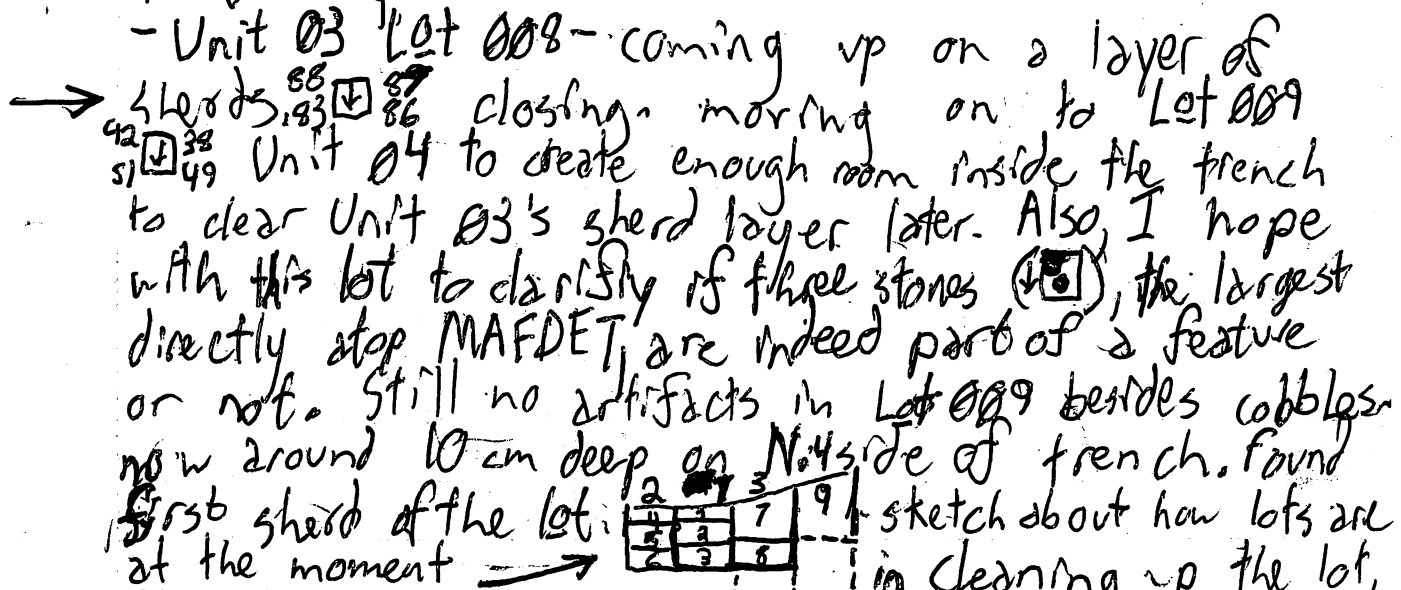 - Unit 03 Lot 008 - coming up on a layer of
→ sherds. 88 83 ↓ 87 86 closing. moving on to Lot 009
42 51 ↓ 38 49 Unit 04 to create enough room inside the trench
to clear Unit 03's sherd layer later. Also, I hope
with this lot to clarifiy if three stones (↓), the largest
directly atop MAFDET, are indeed part of a feature
or not. Still no artifacts in Lot 009 besides cobbles.
now around 10 cm deep on N. side of trench. Found
first sherd of the lot. 2 1 3 sketch about how lots are
4 1 7 9
5 2
6 3 8
at the moment → in cleaning up the lot,